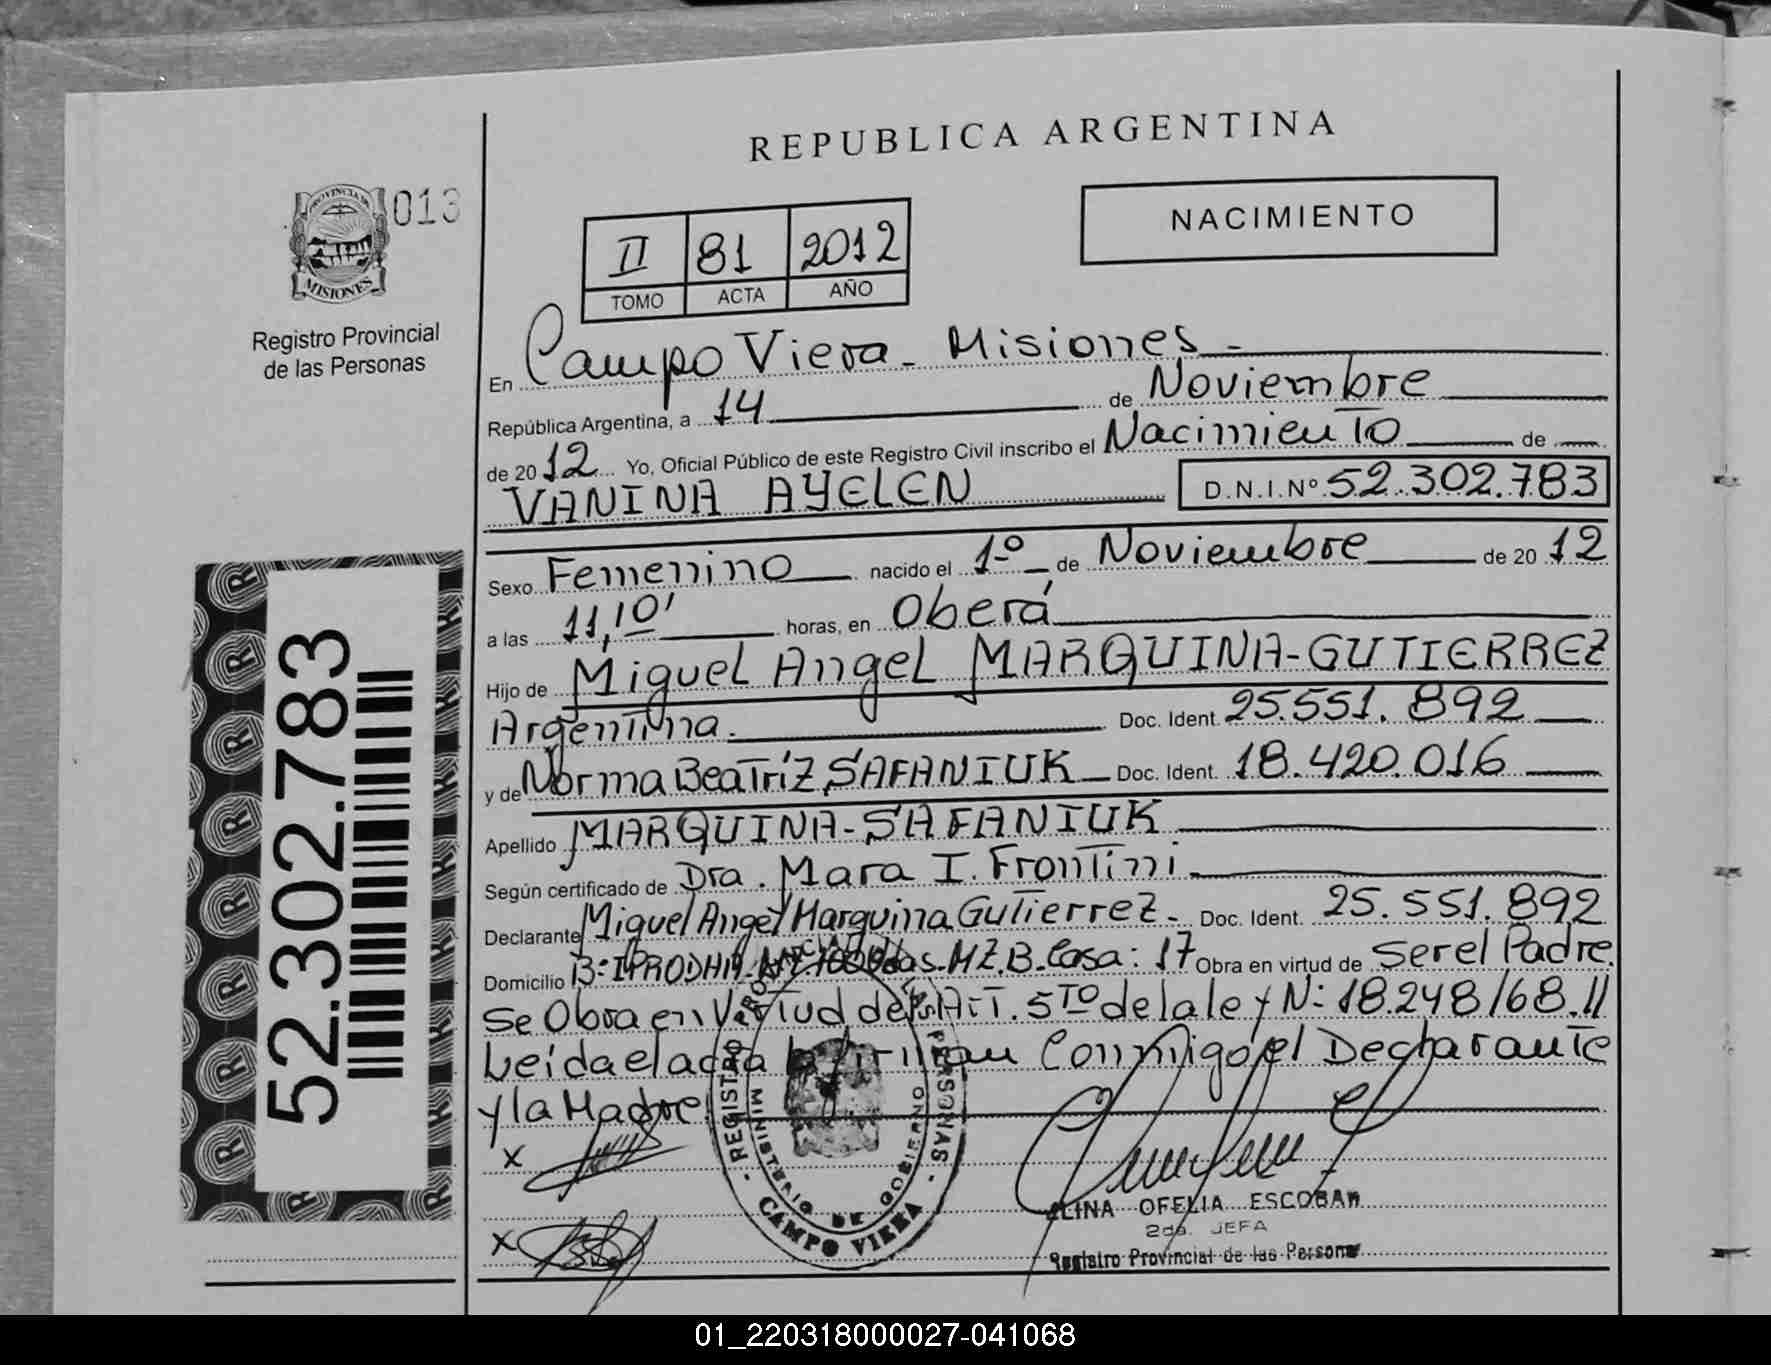 REPUBLICA ARGENTINA
PROVINCIA DE
MISIONES
013
Registro Provincial
de las Personas
II 81 2012
TOMO ACTA AÑO
NACIMIENTO
En Campo Viera - Misiones -
República Argentina, a 14 de Noviembre
de 2012 Yo, Oficial Público de este Registro Civil inscribo el Nacimiento de
VANINA AYELEN D.N.I.Nº 52.302.783
Sexo Femenino nacido el 1º de Noviembre de 2012
a las 11,10' horas, en Oberá
Hijo de Miguel Angel MARQUINA-GUTIERREZ
Argentina. Doc. Ident. 25.551.892
y de Norma Beatríz SAFANIUK Doc. Ident. 18.420.016
Apellido MARQUINA-SAFANIUK
Según certificado de Dra. Mara I. Frontini
Declarante Miguel Angel Marquina Gutierrez - Doc. Ident. 25.551.892
Domicilio B: IPRODHA MZ.B.Casa: 17 Obra en virtud de Ser el Padre.
Se Obra en Virtud del Art. 5to de la ley N: 18.248/68.//
Leída el acta la firman Conmigo el Declarante
y la Madre
X
X
REGISTRO PROVINCIAL DE LAS PERSONAS
MINISTERIO DE GOBIERNO
CAMPO VIERA
ALINA OFELIA ESCOBAR
2da. JEFA
Registro Provincial de las Personas
52.302.783
01_220318000027-041068